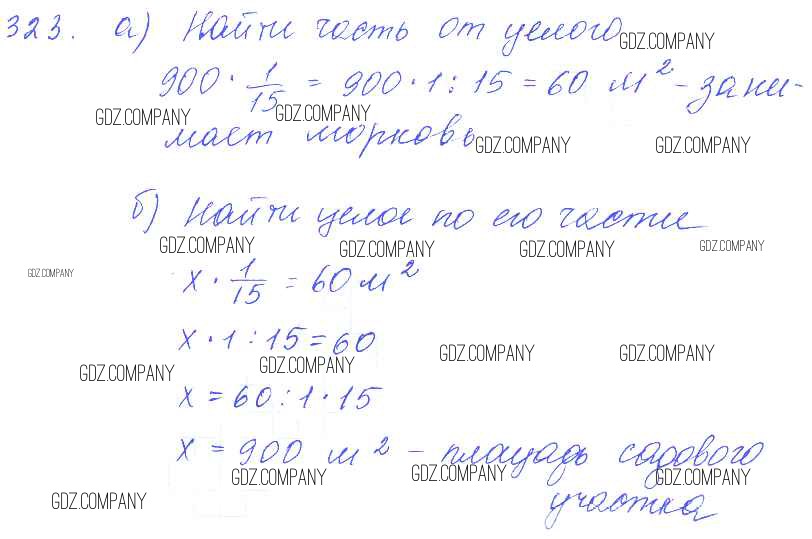 323. а) Найти часть от целого GDZ.COMPANY
900 · 1/15 = 900 · 1 : 15 = 60 м² - зани-
GDZ.COMPANY GDZ.COMPANY
мает морковь GDZ.COMPANY GDZ.COMPANY
б) Найти целое по его части
GDZ.COMPANY GDZ.COMPANY GDZ.COMPANY GDZ.COMPANY
GDZ.COMPANY
x · 1/15 = 60 м²
x · 1 : 15 = 60
GDZ.COMPANY GDZ.COMPANY GDZ.COMPANY GDZ.COMPANY
x = 60 : 1 · 15
x = 900 м² - площадь садового
GDZ.COMPANY GDZ.COMPANY GDZ.COMPANY
GDZ.COMPANY участка